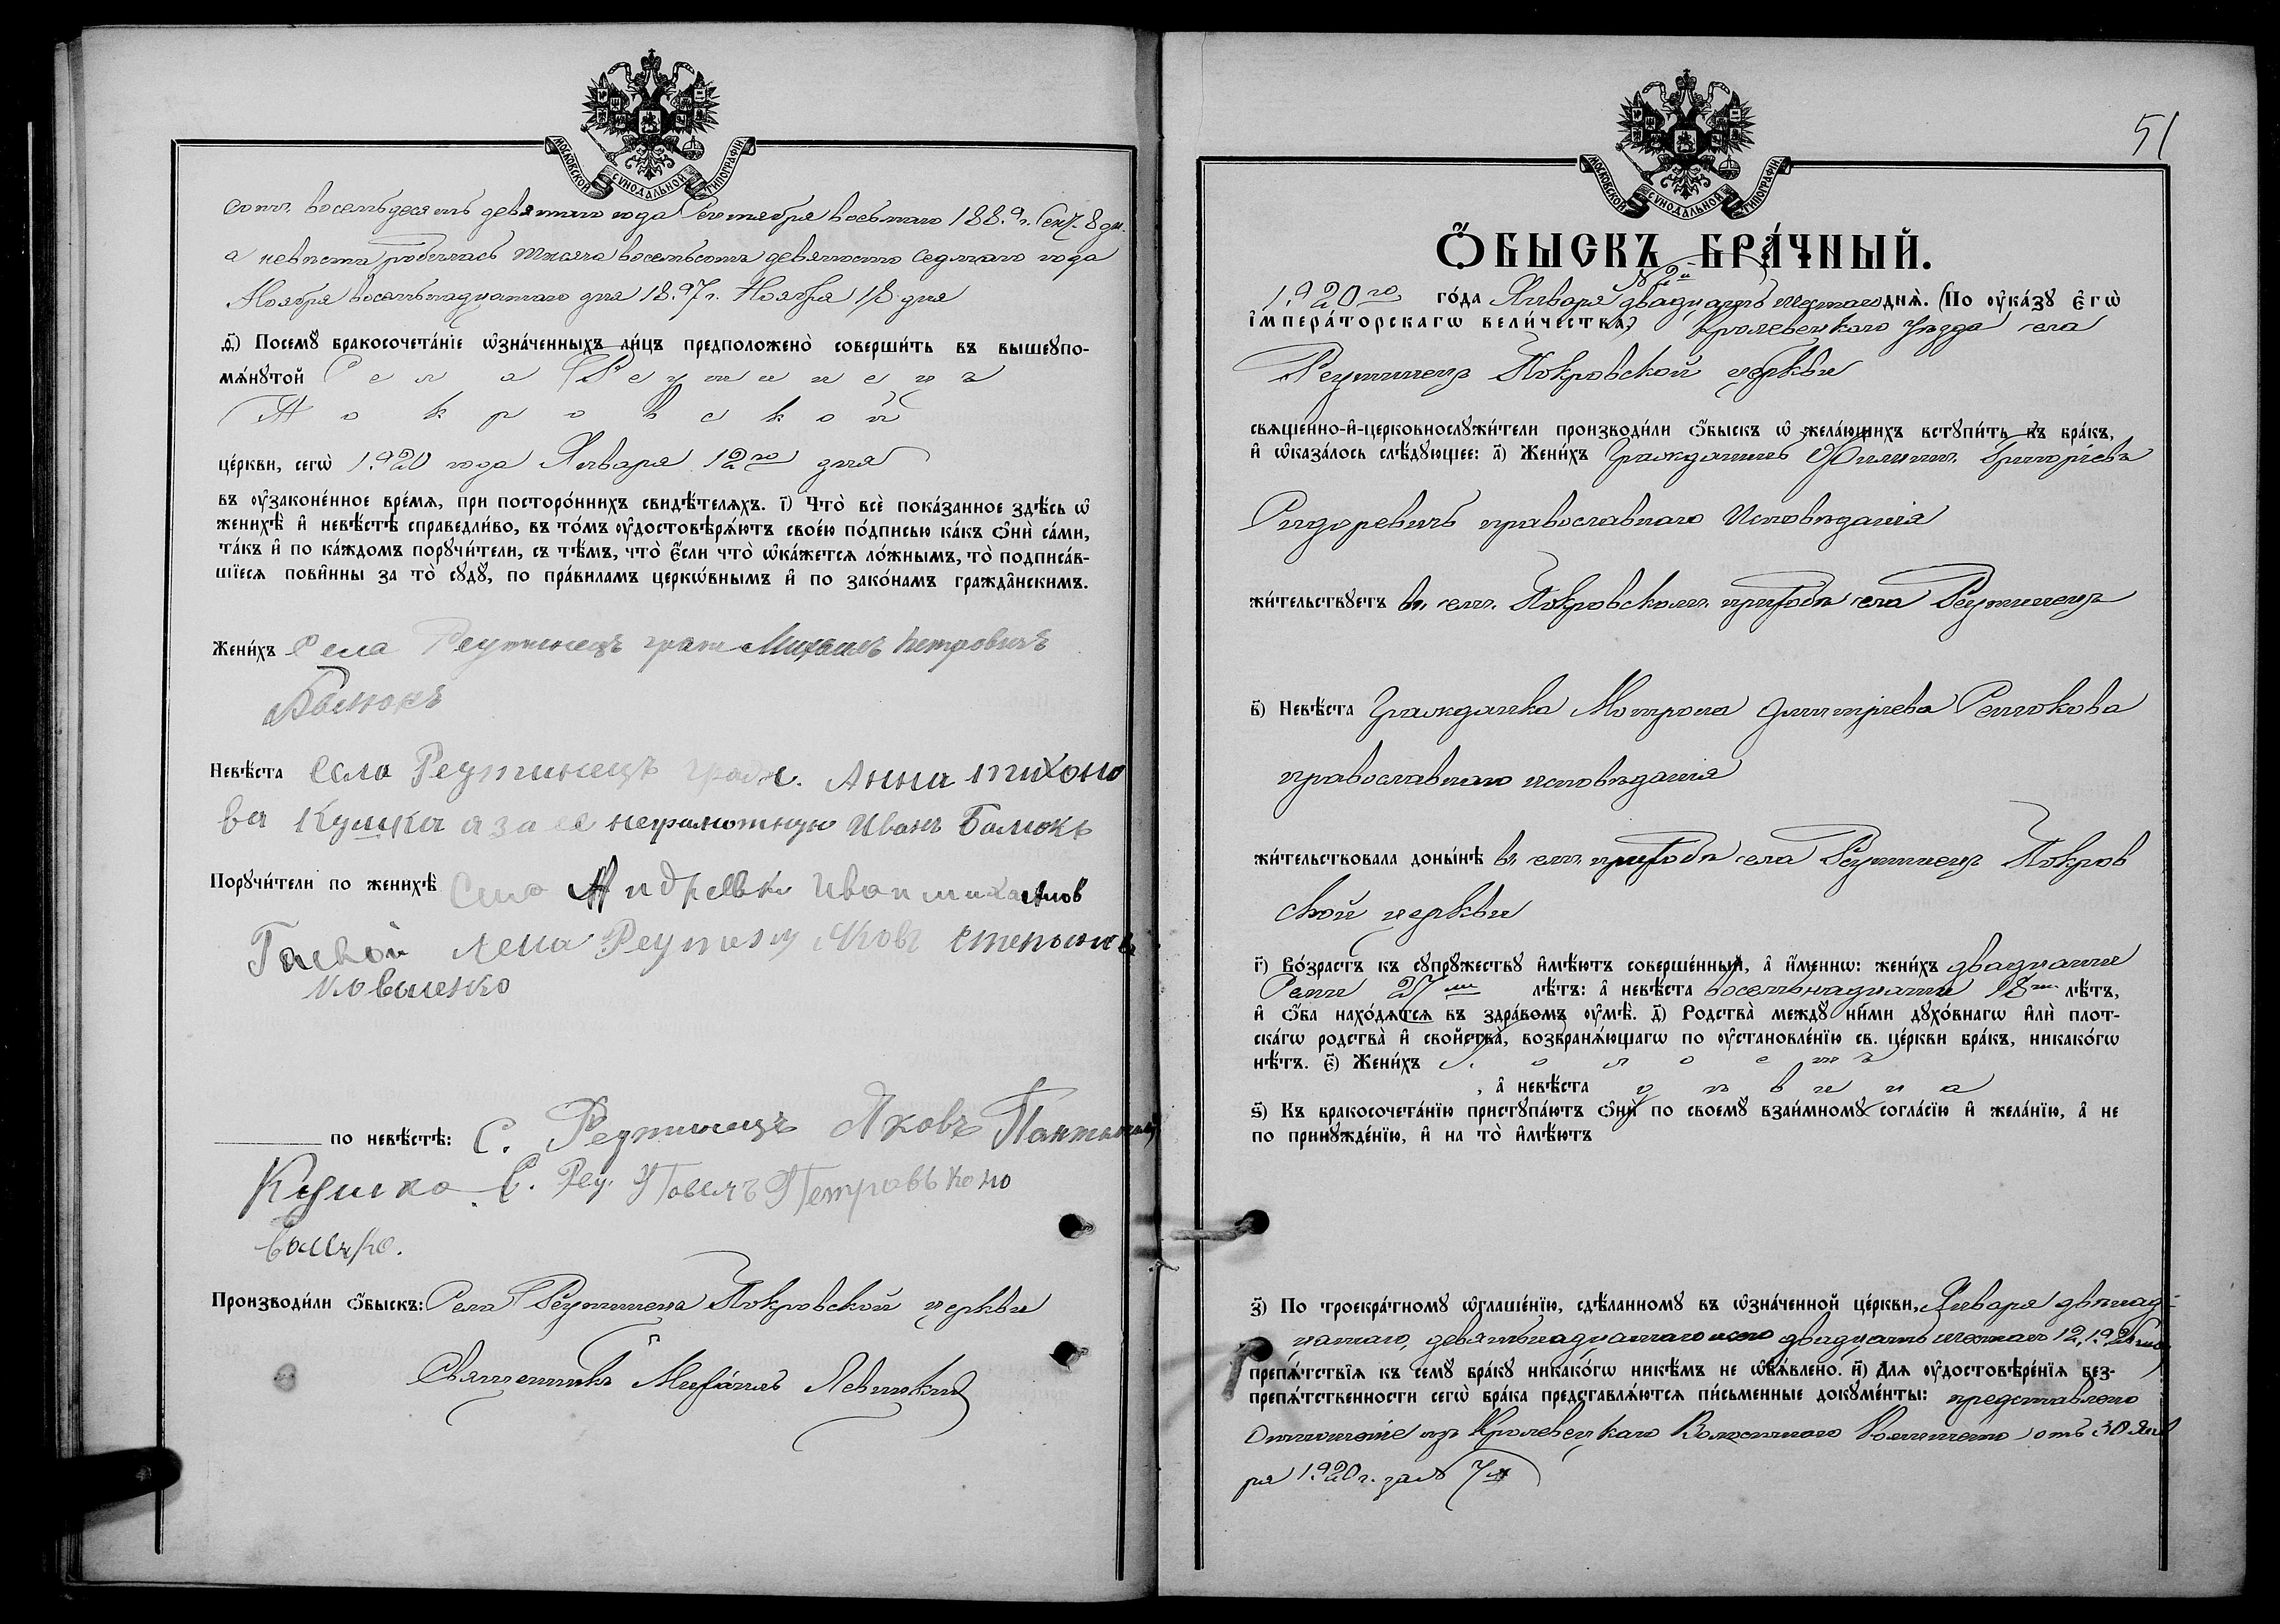 МОСКОВСКОЙ СѴНОДАЛЬНОЙ ТИПОГРАФІИ
сотъ восемьдесятъ девятаго года Сентября восьмаго 188.9 г. Сен. 8 дн.
а невѣста родилась тысяча восемьсотъ девяносто седмаго года
Ноября восемьнадцатаго дня 18.97 г. Ноября 18 дня
д҃) Посемꙋ бракосочета́нїе ѡ҆зна́ченныхъ ли́цъ предположено̀ соверши́ть въ вышеꙋпо-
мѧ́нꙋтой Села Реутинецъ
Покровской
це́ркви, сегѡ̀ 1.920 года Января 12го дня
въ ᲂу҆законе́нное вре́мѧ, при посторо́ннихъ свидѣ́телѧхъ. і҃) Что̀ всѐ пока́занное здѣ́сь ѡ҆
женихѣ̀ и҆ невѣ́стѣ справедли́во, въ то́мъ ᲂу҆достовѣрѧ́ютъ свое́ю по́дписью ка́къ ѻ҆нѝ са́ми,
та́къ и҆ по ка́ждомъ порꙋчи́тели, съ тѣ́мъ, что̀ є҆́сли что̀ ѡ҆ка́жетсѧ ло́жнымъ, то̀ подписа́в-
шїесѧ пови́нны за то̀ сꙋдꙋ̀, по пра́виламъ церко́внымъ и҆ по зако́намъ гражда́нскимъ.
Жени́хъ Села Реутинецъ граж Михаилъ Петровичъ
Балюкъ
Невѣ́ста Села Реутинецъ граж. Анна тихоно
ва Кушка а за ее неграмотную Иванъ Балюкъ
Порꙋчи́тели по женихѣ̀ Села Андреевки Иван михайлов
Гаевой Села Яковъ
по невѣ́стѣ: С. Реутинецъ Яковъ
Кушко С. Реу. Павелъ Петровъ Ко
валько.
Производи́ли ѻ҆́быскъ: Села Реутинецъ Покровской церкви
Священникъ Михаилъ Левицкий
51
МОСКОВСКОЙ СѴНОДАЛЬНОЙ ТИПОГРАФІИ
Ѻ҆́БЫСКЪ БРА́ЧНЫЙ.
№ 2й
1.920го го́да Января двадцать шестаго днѧ̀. (По ᲂу҆ка́зꙋ є҆гѡ̀
і҆мпера́торскагѡ вели́чества) Кролевецкаго Уѣзда села
Реутинецъ Покровской церкви
свѧще́нно-и҆-церковнослꙋжи́тели производи́ли ѻ҆́быскъ ѡ҆ жела́ющихъ встꙋпи́ть въ бра́къ,
и҆ ѡ҆каза́лось слѣ́дꙋющее: а҃) Жени́хъ Гражданинъ Филиппъ Григоріевъ
Сидоревичъ православнаго Исповѣданія
жи́тельствꙋетъ въ семъ Покровскомъ приходѣ села Реутинецъ
в҃) Невѣ́ста Гражданка Мотрона Димитріева Сенчокова
православнаго исповѣданія
жи́тельствовала доны́нѣ въ семъ приходѣ села Реутинецъ Покров
ской церкви
г҃) Во́зрастъ къ сꙋпрꙋ́жествꙋ и҆мѣ́ютъ соверше́нный, а҆ и҆́меннѡ: жени́хъ двадцати
Семи 27ми лѣ́тъ: а҆ невѣ́ста восемьнадцати 18ти лѣ́тъ,
и҆ ѻ҆́ба нахо́дѧтсѧ въ здра́вомъ ᲂу҆мѣ̀. д҃) Родства̀ междꙋ̀ ни́ми дꙋхо́внагѡ и҆лѝ плот-
ска́гѡ родства̀ и҆ свойства̀, возбранѧ́ющагѡ по ᲂу҆становле́нїю св. це́ркви бра́къ, никако́гѡ
нѣ́тъ. є҃) Жени́хъ холостъ
, а҆ невѣ́ста дѣвица
ѕ҃) Къ бракосочета́нїю пристꙋпа́ютъ ѻ҆нѝ по своемꙋ̀ взаи́мномꙋ согла́сїю и҆ жела́нїю, а҆ не
по принꙋжде́нїю, и҆ на то̀ и҆мѣ́ютъ
з҃) По троекра́тномꙋ ѡ҆глаше́нїю, сдѣ́ланномꙋ въ ѡ҆зна́ченной це́ркви, Января двѣнад-
цатаго, девятьнадцатаго и двадцать шестаго 12, 19, 26
препѧ́тствїѧ къ семꙋ̀ бра́кꙋ никако́гѡ никѣ́мъ не ѡ҆б̾ѧ́влено. и҃) Длѧ ᲂу҆достовѣре́нїѧ без-
препѧ́тственности сегѡ̀ бра́ка представлѧ́ютсѧ пи́сьменные докꙋме́нты: представлено
Отношеніе изъ Кролевецкаго Волостного Комитета отъ 30 Янв
ря 1.920 г. за №